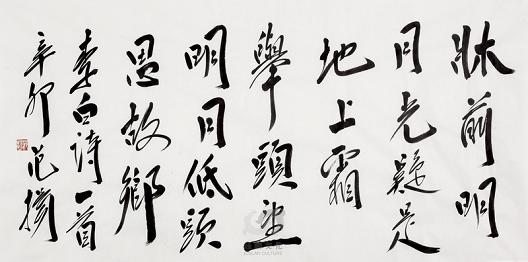 牀前明
月光疑是
地上霜
舉頭望
明月低頭
思故鄉
李白詩一首
辛卯 范